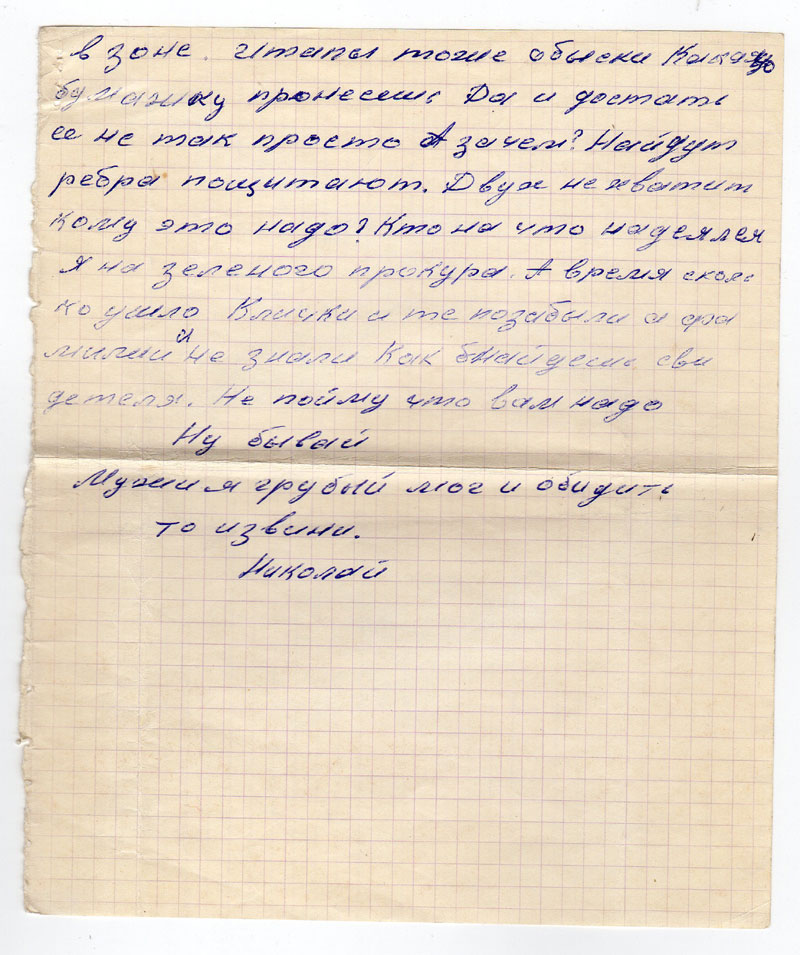 в зоне. Этапы тоже обыски Какую
бумажку пронесешь Да и достать
ее не так просто А зачем? Найдут
ребра пощитают. Двух не хватит
кому это надо? Кто на что надеялся
я на зеленого прокура. А время сколь
ко ушло Клички и те позабыли а фа
милии и не знали Как найдешь сви
детеля. Не пойму что вам надо
Ну бывай
Мужик я грубый мог и обидить
то извини.
Николай